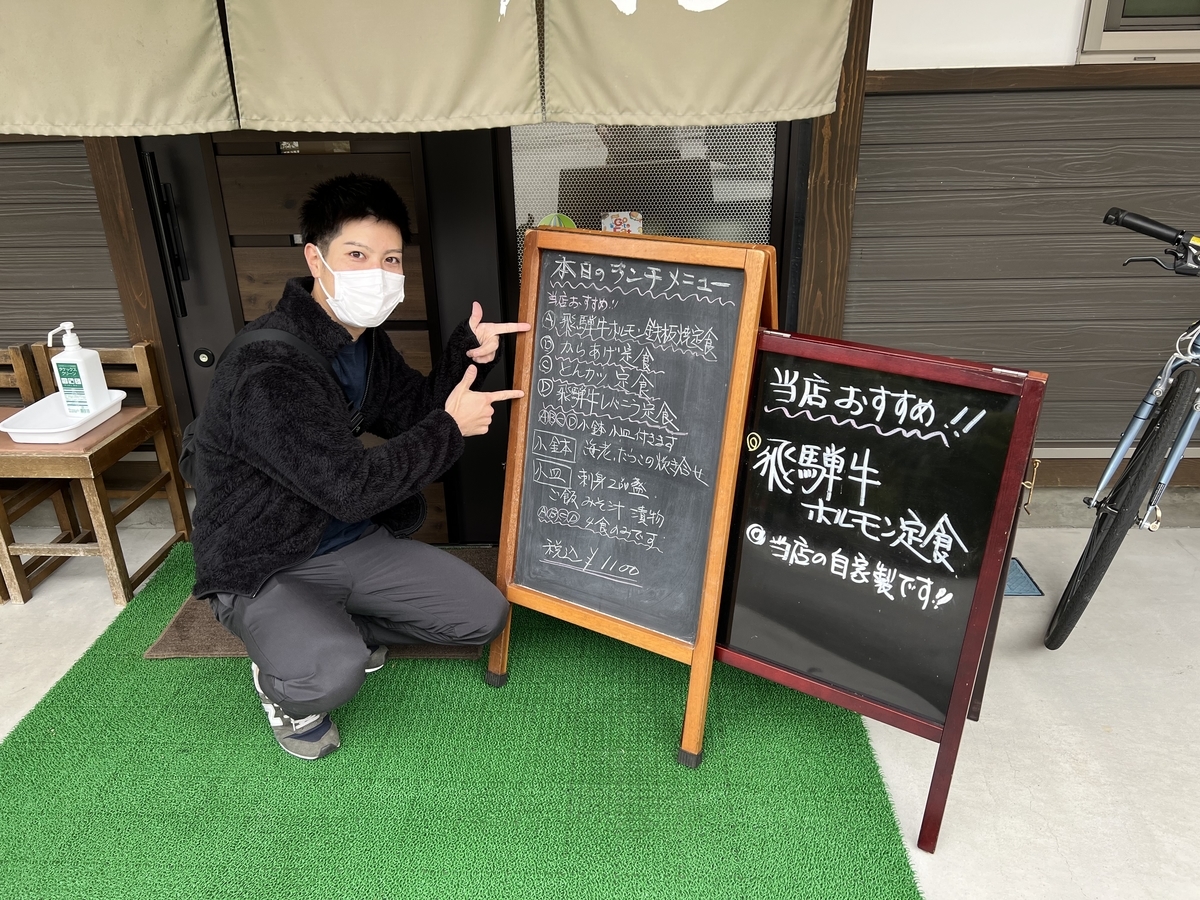 本日のランチメニュー
当店おすすめ!!
Ⓐ飛騨牛ホルモン鉄板焼定食
Ⓑからあげ定食
Ⓒとんカツ定食
Ⓓ飛騨牛しぐれ定食
ⒶⒷⒸⒹ小鉢小皿付きます
小鉢 海老、たけのこの炊合せ
小皿 刺身2種盛
ご飯 みそ汁 漬物
ⒶⒷⒸⒹ 4食のみです。
税込¥1100
当店おすすめ!!
飛騨牛
ホルモン定食
◎当店の自家製です!!